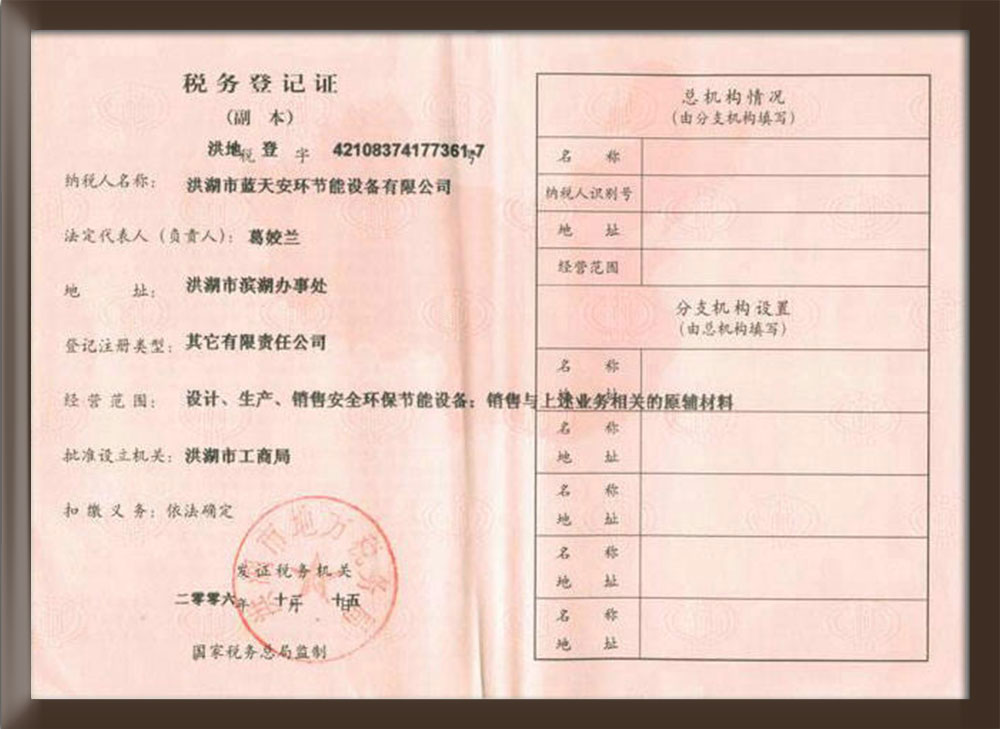 税务登记证
(副 本)
洪地税 登 字 42108374177361-7号
纳税人名称： 洪湖市蓝天安环节能设备有限公司
法定代表人（负责人）： 葛姣兰
地 址： 洪湖市滨湖办事处
登记注册类型： 其它有限责任公司
经营范围： 设计、生产、销售安全环保节能设备；销售与上述业务相关的原辅材料
批准设立机关： 洪湖市工商局
扣缴义务： 依法确定
发证税务机关
二零零六年 十二月 十五日
国家税务总局监制
总机构情况
(由分支机构填写)
名 称
纳税人识别号
地 址
经营范围
分支机构设置
(由总机构填写)
名 称
地 址
名 称
地 址
名 称
地 址
名 称
地 址
名 称
地 址